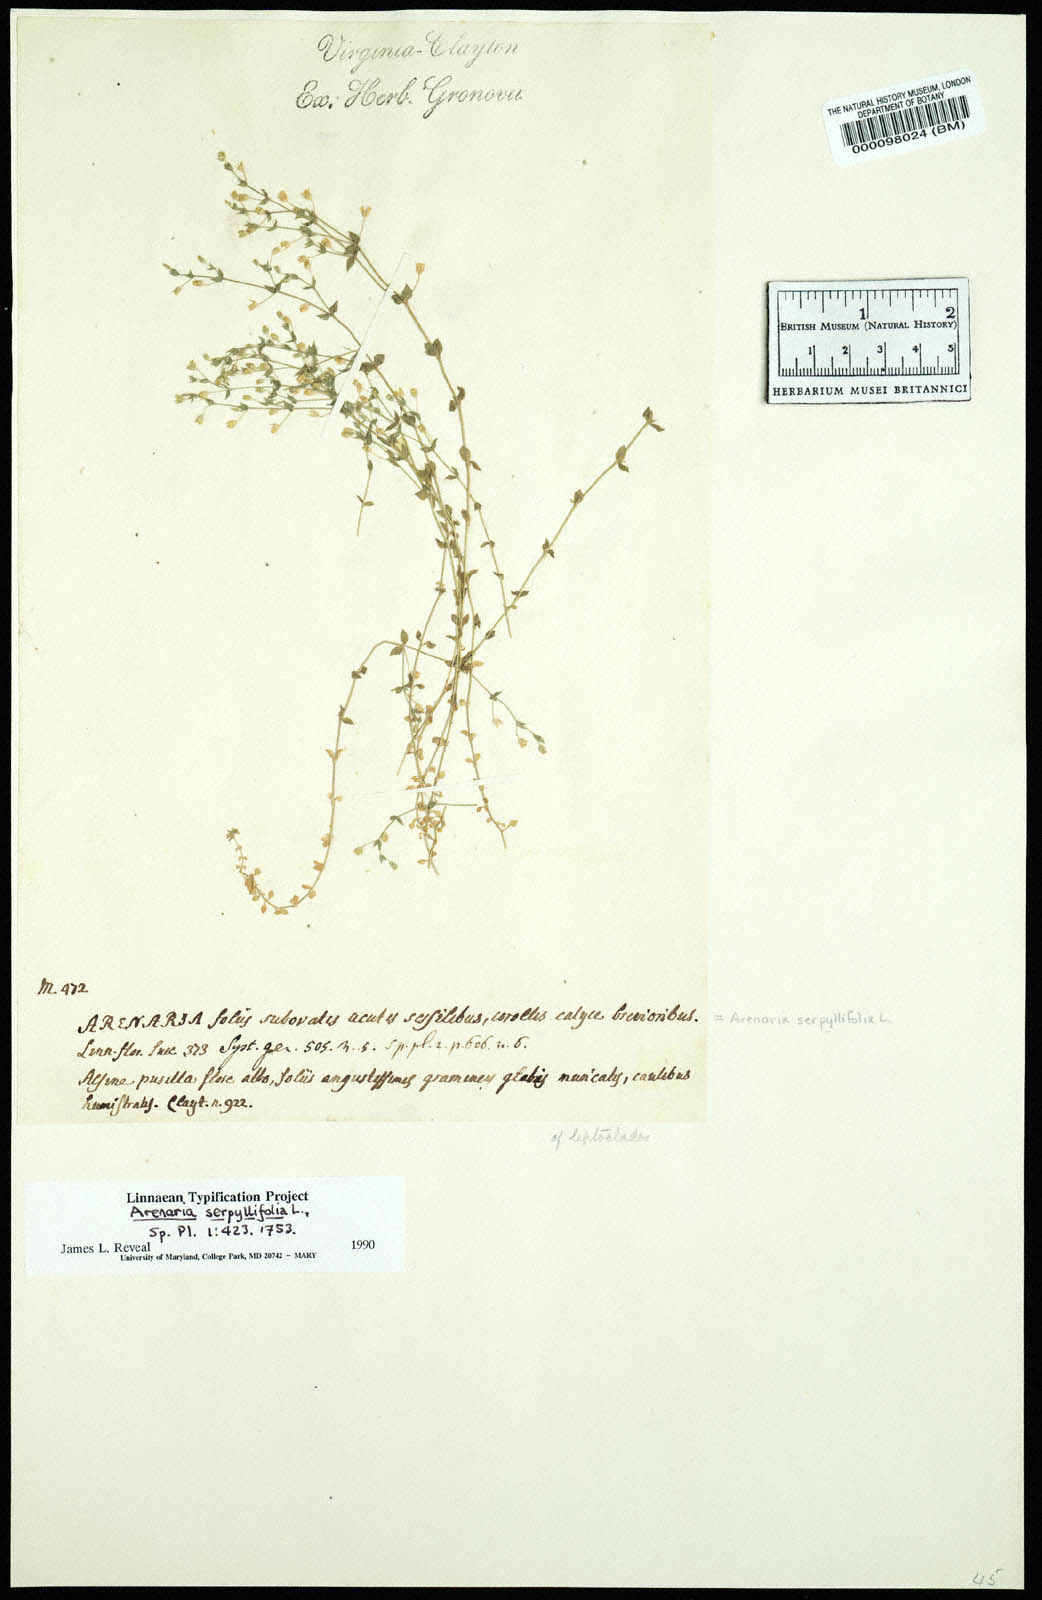 Virginia-Clayton
Ex: Herb. Gronovii.
THE NATURAL HISTORY MUSEUM, LONDON
DEPARTMENT OF BOTANY
000098024 (BM)
1 2
BRITISH MUSEUM (NATURAL HISTORY)
1 2 3 4 5
HERBARIUM MUSEI BRITANNICI
M. 472
ARENARIA foliis subovatis acutis sessilibus, corollis calyce brevioribus.
= Arenaria serpyllifolia L.
Linn. flor. Suec. 373 Syst. gen. 505. n. 5. Sp. pl. 2. p. 606. n. 6.
Alsine pusilla flore albo, foliis angustissimis gramineis glabris muricatis, caulibus
humistratis. Clayt. n. 922.
cf leptoclados
Linnaean Typification Project
Arenaria serpyllifolia L.,
Sp. Pl. 1:423. 1753.
James L. Reveal 1990
University of Maryland, College Park, MD 20742 – MARY
45